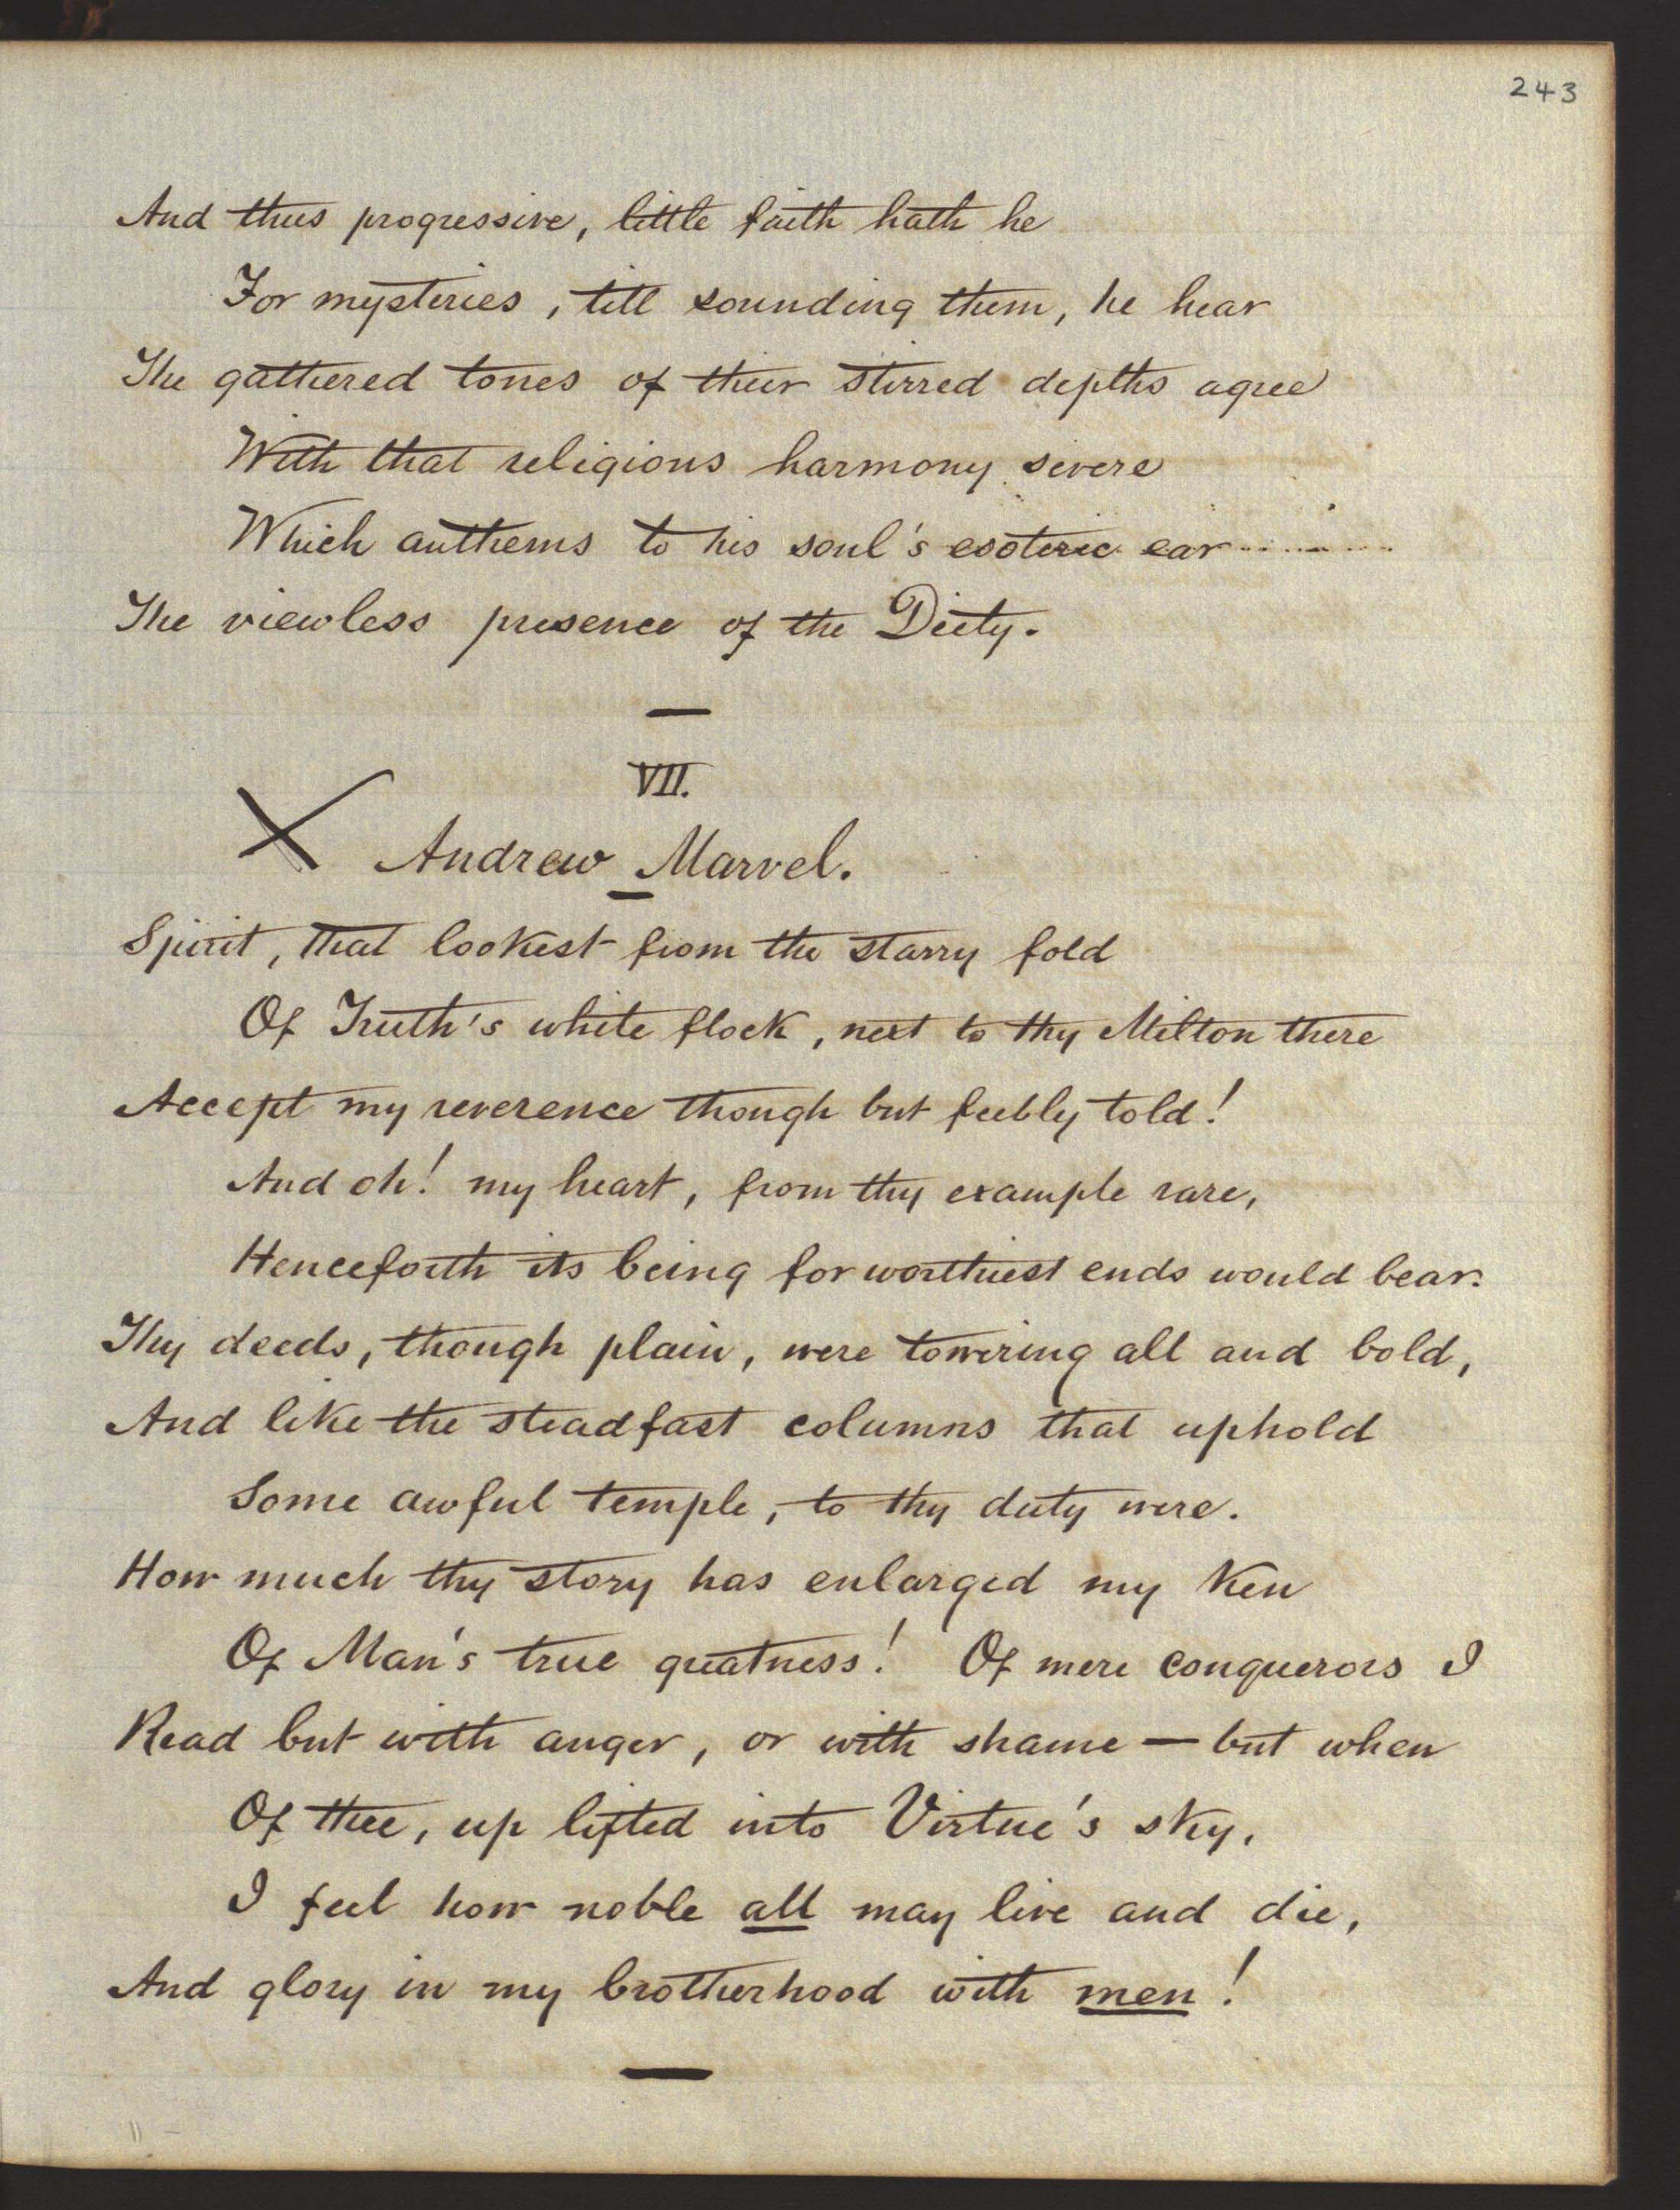 243
And thus progressive, little faith hath he
For mysteries, till sounding them, he hear
The gathered tones of their stirred depths agree
With that religious harmony severe
Which anthems to his soul's esoteric ear
The viewless presence of the Diety.
VII.
Andrew Marvel.
Spirit, that lookest from the starry fold
Of Truth's white flock, next to thy Milton there
Accept my reverence though but feebly told!
And oh! my heart, from thy example rare,
Henceforth its being for worthiest ends would bear.
Thy deeds, though plain, were towering all and bold,
And like the steadfast columns that uphold
Some awful temple, to thy duty were.
How much thy story has enlarged my ken
Of Man's true greatness! Of mere conquerors I
Read but with anger, or with shame — but when
Of thee, up lifted into Virtue's sky,
I feel how noble all may live and die,
And glory in my brotherhood with men!